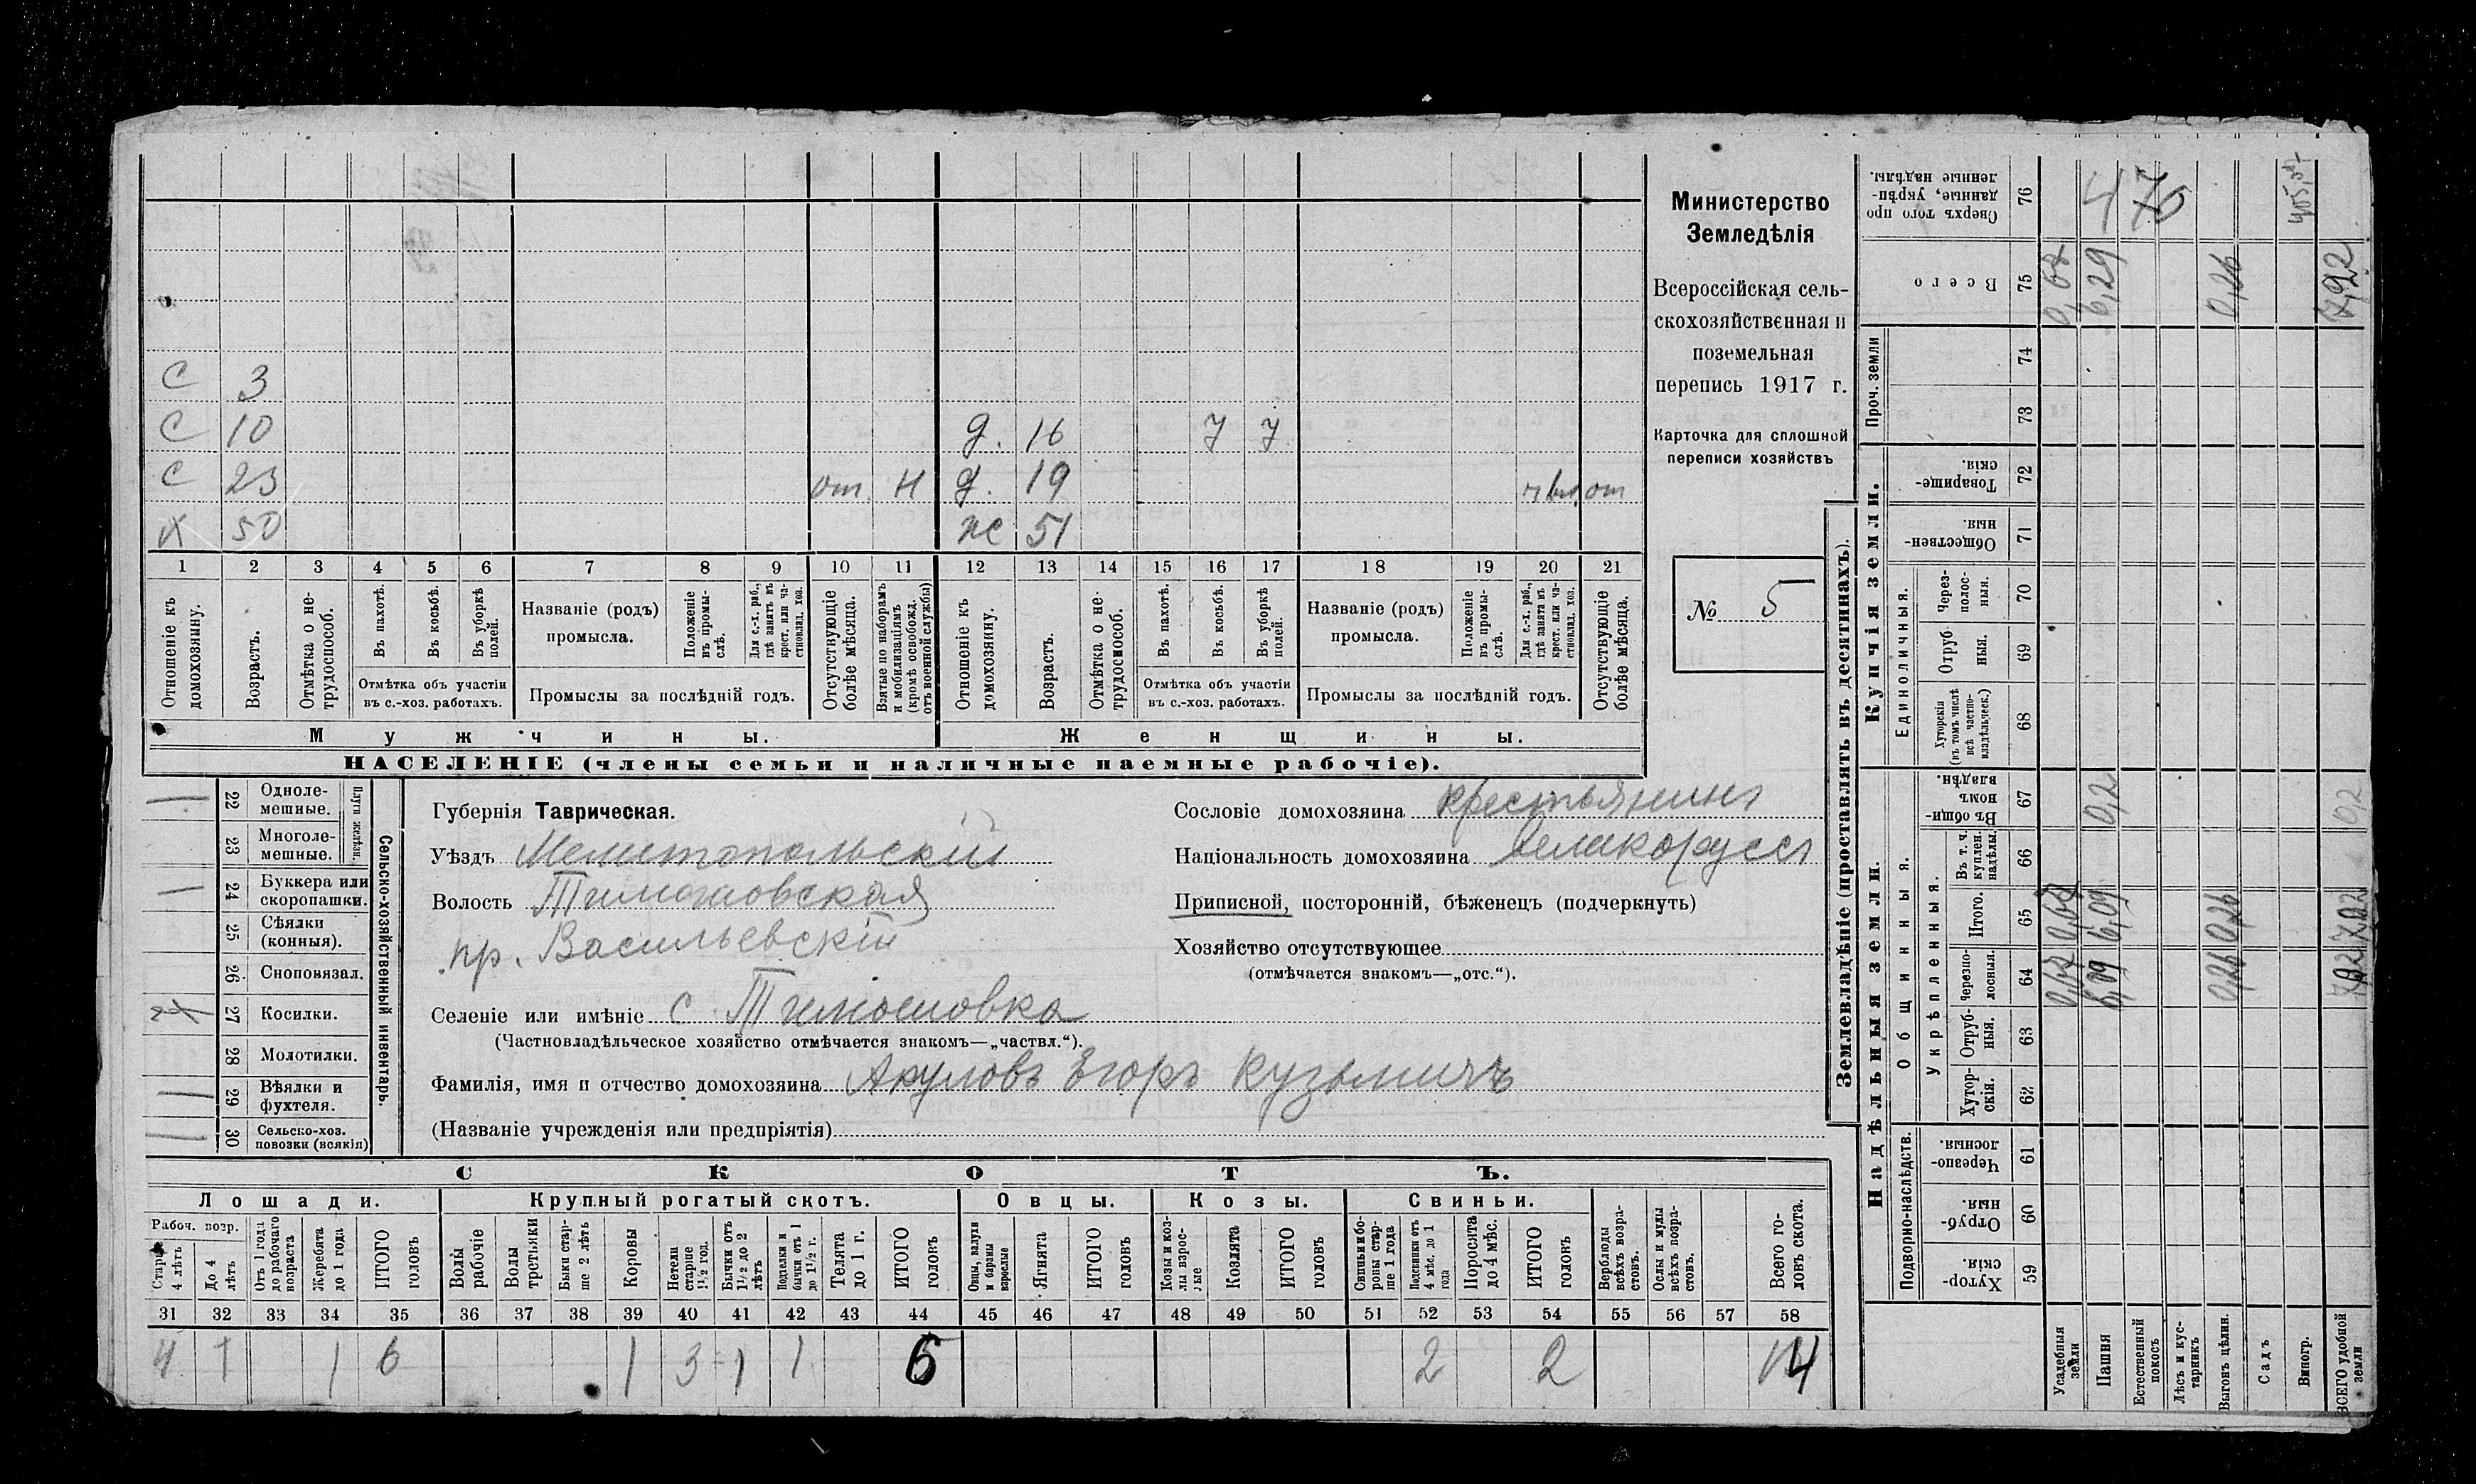 Министерство
Земледѣлія
Всероссійская сель-
скохозяйственная и
поземельная
перепись 1917 г.
Карточка для сплошной
переписи хозяйствъ
№ 5
С 3
С 10 д. 16 7 7
С 23 от. Н д. 19 от
Х 50 ж 51
1 2 3 4 5 6 7 8 9 10 11 12 13 14 15 16 17 18 19 20 21
Отношеніе къ домохозяину.
Возрастъ.
Отмѣтка о не-трудоспособ.
Въ пахотѣ.
Въ косьбѣ.
Въ уборкѣ полей.
Отмѣтка объ участіи
въ с.-хоз. работахъ.
Названіе (родъ)
промысла.
Положеніе въ промы-слѣ.
Для с.-х. раб., гдѣ занятъ въ крест. или ча-стновлад. хоз.
Промыслы за послѣдній годъ.
Отсутствующіе болѣе мѣсяца.
Взятые по наборамъ и мобилизаціямъ (кромѣ освобожд. отъ военной службы)
Отношеніе къ домохозяину.
Возрастъ.
Отмѣтка о не-трудоспособ.
Въ пахотѣ.
Въ косьбѣ.
Въ уборкѣ полей.
Отмѣтка объ участіи
въ с.-хоз. работахъ.
Названіе (родъ)
промысла.
Положеніе въ промы-слѣ.
Для с.-х. раб., гдѣ занята въ крест. или ча-стновлад. хоз.
Промыслы за послѣдній годъ.
Отсутствующіе болѣе мѣсяца.
Мужчины. Женщины.
НАСЕЛЕНІЕ (члены семьи и наличные наемные рабочіе).
22 Одноле-мешные.
23 Многоле-мешные.
Плуги желѣзн.
24 Буккера или скоропашки.
25 Сѣялки (конныя).
26 Сноповязал.
27 Косилки.
28 Молотилки.
29 Вѣялки и фухтеля.
30 Сельско-хоз. повозки (всякія)
Сельско-хозяйственный инвентарь.
Губернія Таврическая.
Уѣздъ Мелитопольскій
Волость Тимошовская
пр. Васильевскій
Селеніе или имѣніе с Тимошовка
(Частновладѣльческое хозяйство отмѣчается знакомъ—„частвл.“).
Фамилія, имя и отчество домохозяина Акуловъ Егоръ Кузьмичъ
(Названіе учрежденія или предпріятія)
Сословіе домохозяина крестьянинъ
Національность домохозяина великоруссъ
Приписной, посторонній, бѣженецъ (подчеркнуть)
Хозяйство отсутствующее
(отмѣчается знакомъ—„отс.“).
СКОТЪ.
Лошади. Крупный рогатый скотъ. Овцы. Козы. Свиньи.
Рабоч. возр.
Старше 4 лѣтъ
До 4 лѣтъ
Отъ 1 года до рабочаго возраста
Жеребята до 1 года
ИТОГО головъ
Волы рабочіе
Волы третьяки
Быки стар-ше 2 лѣтъ
Коровы
Нетели старше 1½ год.
Бычки отъ 1½ до 2 лѣтъ
Подтелки и бычки отъ 1 до 1½ г.
Телята до 1 г.
ИТОГО головъ
Овцы, валухи и бараны взрослые
Ягнята
ИТОГО головъ
Козы и коз-лы взрос-лые
Козлята
ИТОГО головъ
Свиньи и бо-ровы стар-ше 1 года
Подсвинки отъ 4 мѣс. до 1 года
Поросята до 4 мѣс.
ИТОГО головъ
Верблюды всѣхъ возра-стовъ.
Ослы и мулы всѣхъ возра-стовъ.
Всего го-ловъ скота.
31 32 33 34 35 36 37 38 39 40 41 42 43 44 45 46 47 48 49 50 51 52 53 54 55 56 57 58
4 1 1 6 1 3 1 1 6 2 2 14
Землевладѣніе (проставлять въ десятинахъ).
Надѣльныя земли. Купчія земли. Проч. земли
Подворно-наслѣдств.
Общинныя.
Укрѣпленныя.
Единоличныя.
Хутор-скія. 59
Отруб-ныя. 60
Черезпо-лосныя. 61
Хутор-скія. 62
Отруб-ныя. 63
Черезпо-лосныя. 64
Итого. 65
Въ т. ч. куплен. надѣлы. 66
Въ общин-номъ владѣн. 67
Хуторскія (въ томъ числѣ всѣ частно-владѣльческ.) 68
Отруб-ныя. 69
Через-полос-ныя. 70
Обществен-ныя. 71
Товарище-скія. 72
73
74
Всего 75
Сверхъ того про-данные, укрѣп-ленные надѣлы. 76
Усадебныя земли
Пашня 6,09 6,09 0,2 6,29
Естественный покосъ
Лѣсъ и кус-тарникъ
Выгонъ цѣлин. 0,26 0,26 0,26
Садъ
Виногр.
ВСЕГО удобной земли 0,2
476